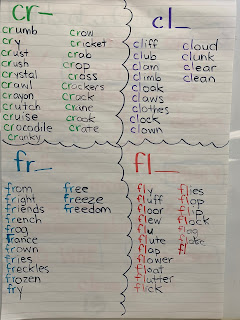 cr-
crumb
cry
crust
crush
crystal
crawl
crayon
crutch
cruise
crocodile
cranky
crow
cricket
crab
crop
cross
crackers
crack
crane
crook
crate
cl_
cliff
club
clam
climb
clook
claws
clothes
clock
clown
cloud
clunk
clear
clean
fr_
from
fright
friends
french
frog
france
frown
fries
freckles
frozen
fry
free
freeze
freedom
fl_
fly
fluff
floor
flew
flu
flute
flap
flower
float
flutter
flick
flies
flop
flip
flock
flag
flake
fl